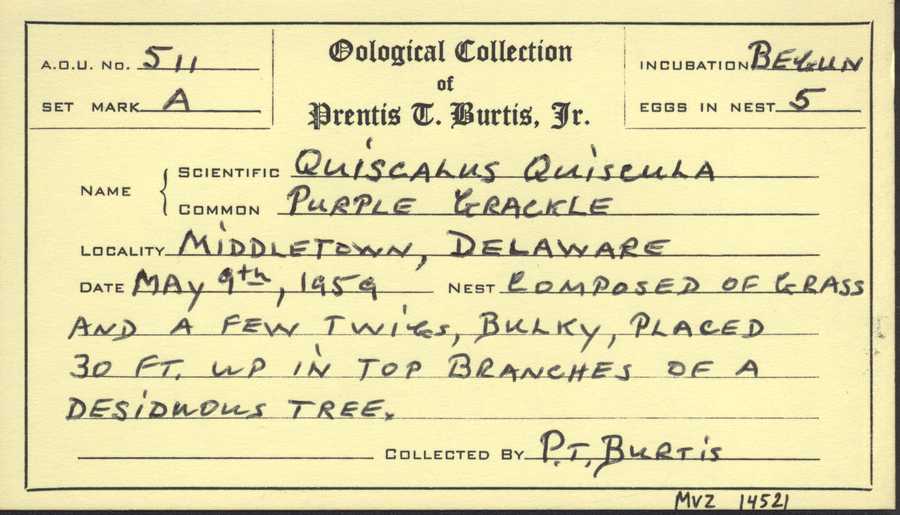 A.O.U. No. 511
SET MARK A
Oological Collection
of
Prentis T. Burtis, Jr.
INCUBATION BEGUN
EGGS IN NEST 5
NAME { SCIENTIFIC QUISCALUS QUISCULA
COMMON PURPLE GRACKLE
LOCALITY MIDDLETOWN, DELAWARE
DATE MAY 9th, 1959 NEST COMPOSED OF GRASS
AND A FEW TWIGS, BULKY, PLACED
30 FT. UP IN TOP BRANCHES OF A
DESIDUOUS TREE.
COLLECTED BY P.T. BURTIS
MVZ 14521